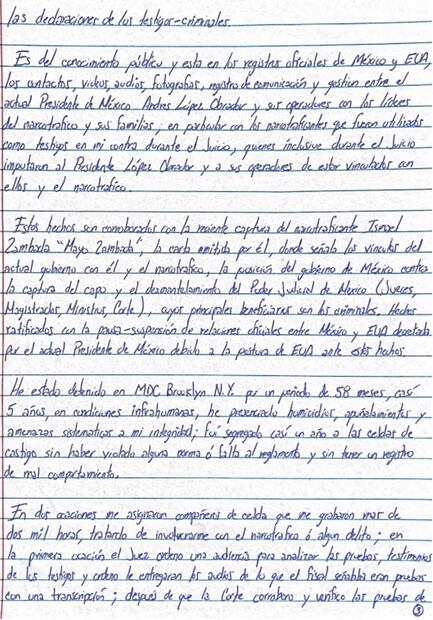 las declaraciones de los testigos-criminales.
Es del conocimiento público y esta en los registros oficiales de México y EUA,
los contactos, videos, audios, fotografias, registro de comunicación y gestion entre el
actual Presidente de México Andres López Obrador y sus operadores con los líderes
del narcotrafico y sus familias; en particular con los narcotraficantes que fueron utilizados
como testigos en mi contra durante el Juicio, quienes inclusive durante el Juicio
imputaron al Presidente López Obrador y a sus operadores de estar vinculados con
ellos y el narcotrafico.
Estos hechos son corroborados con la reciente captura del narcotraficante Ismael
Zambada "Mayo Zambada", la carta emitida por él, donde señala los vinculos del
actual gobierno con él y el narcotrafico, la posición del gobierno de México contra
la captura del capo y el desmantelamiento del Poder Judicial de México (Jueces,
Magistrados, Ministros, Corte), cuyos principales beneficiarios son los criminales. Hechos
ratificados con la pausa-suspensión de relaciones oficiales entre México y EUA decretada
por el actual Presidente de México debido a la postura de EUA ante estos hechos.
He estado detenido en MDC Brooklyn N.Y. por un periodo de 58 meses, casí
5 años, en condiciones infrahumanas, he presenciado homicidios, apuñalamientos y
amenazas sistematicas a mi integridad; fuí segregado casí un año a las celdas de
castigo sin haber violado alguna norma ó falta al reglamento y sin tener un registro
de mal comportamiento.
En dos ocaciones me asignaron compañeros de celda que me grabaron mas de
dos mil horas, tratando de involucrarme con el narcotrafico ó algun delito; en
la primera ocación el Juez ordeno una audiencia para analizar las pruebas, testimonios
de los testigos y ordeno le entregaran los audios de lo que el fiscal señalaba eran pruebas
con una transcripción; después de que la Corte corroboro y verifico las pruebas de
5